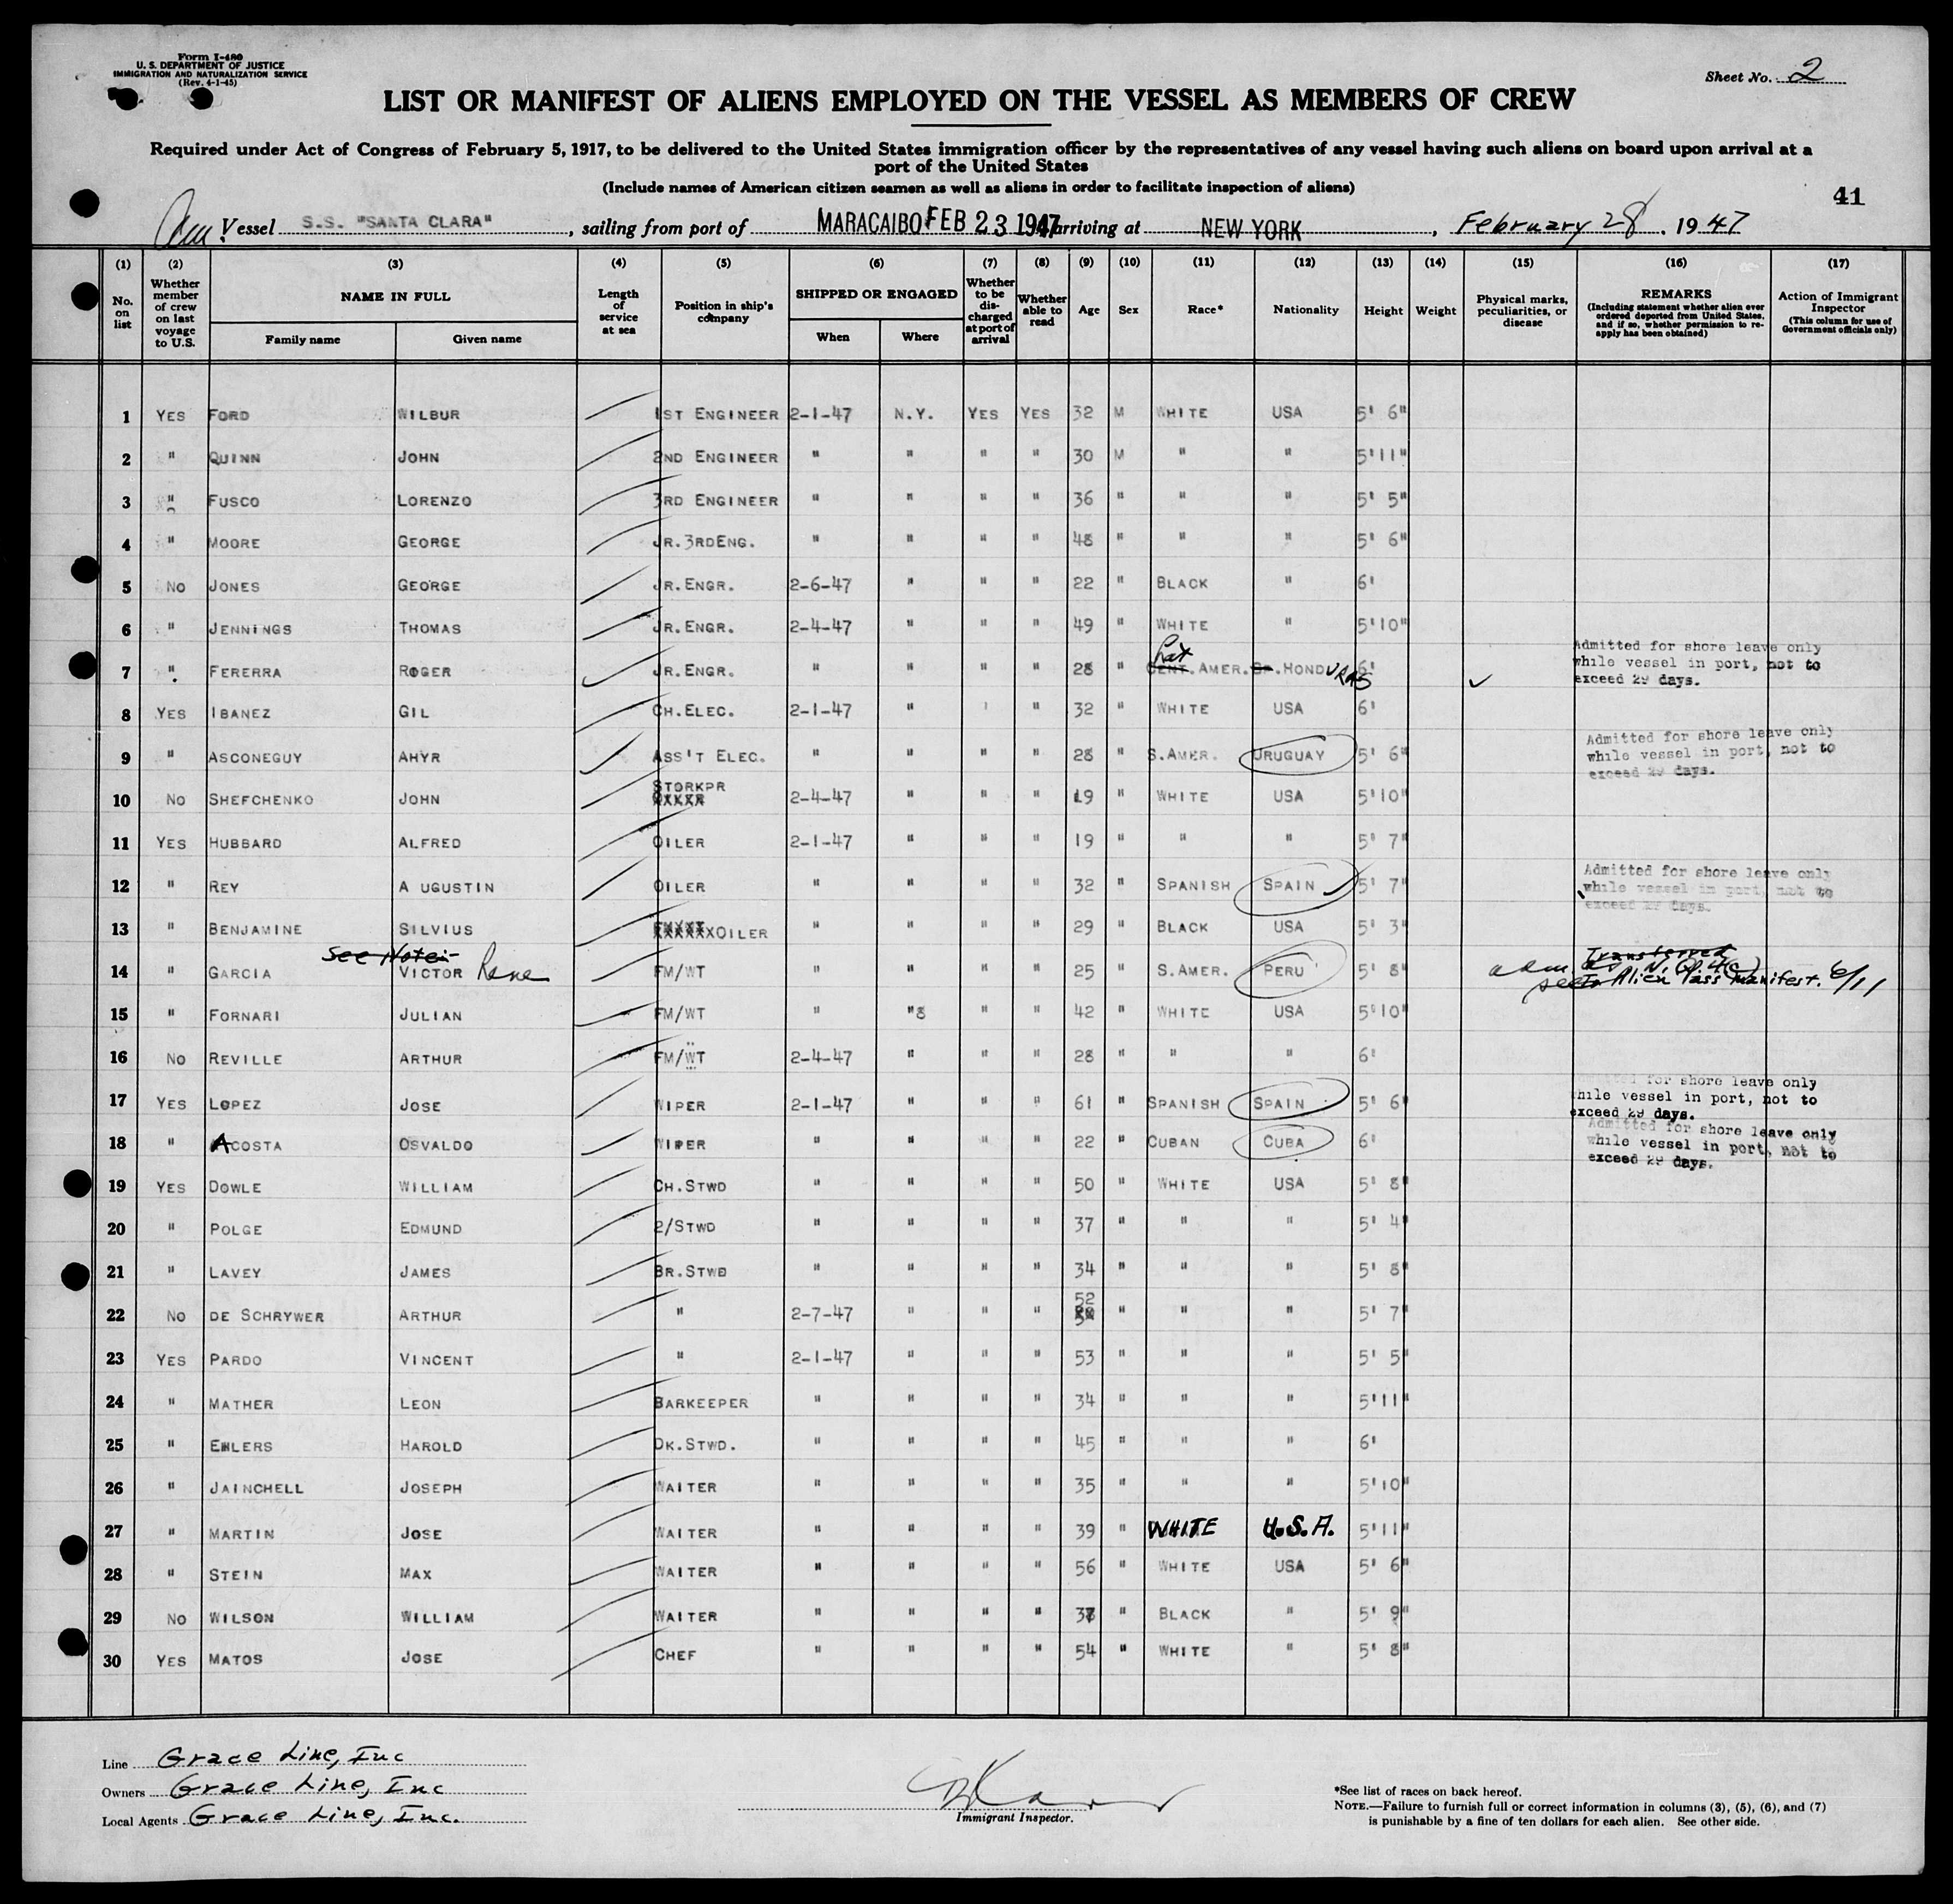 Form I-480
U. S. DEPARTMENT OF JUSTICE
IMMIGRATION AND NATURALIZATION SERVICE
(Rev. 4-1-45)
Sheet No. 2
LIST OR MANIFEST OF ALIENS EMPLOYED ON THE VESSEL AS MEMBERS OF CREW
Required under Act of Congress of February 5, 1917, to be delivered to the United States immigration officer by the representatives of any vessel having such aliens on board upon arrival at a
port of the United States
(Include names of American citizen seamen as well as aliens in order to facilitate inspection of aliens)
41
Am. Vessel S.S. "SANTA CLARA", sailing from port of MARACAIBO FEB 23 1947 arriving at NEW YORK, February 28, 1947
(1) (2) (3) (4) (5) (6) (7) (8) (9) (10) (11) (12) (13) (14) (15) (16) (17)
No. on list
Whether member of crew on last voyage to U.S.
NAME IN FULL
Family name Given name
Length of service at sea
Position in ship's company
SHIPPED OR ENGAGED
When Where
Whether to be discharged at port of arrival
Whether able to read
Age
Sex
Race*
Nationality
Height
Weight
Physical marks, peculiarities, or disease
REMARKS
(Including statement whether alien ever ordered deported from United States, and if so, whether permission to re-apply has been obtained)
Action of Immigrant Inspector
(This column for use of Government officials only)
1 YES FORD WILBUR 1ST ENGINEER 2-1-47 N.Y. YES YES 32 M WHITE USA 5' 6"
2 " QUINN JOHN 2ND ENGINEER " " " " 30 M " " 5'11"
3 " FUSCO LORENZO 3RD ENGINEER " " " " 36 " " " 5' 5"
4 " MOORE GEORGE JR.3RDENG. " " " " 48 " " " 5' 6"
5 NO JONES GEORGE JR.ENGR. 2-6-47 " " " 22 " BLACK " 6'
6 " JENNINGS THOMAS JR.ENGR. 2-4-47 " " " 49 " WHITE " 5'10"
7 " FERERRA ROGER JR.ENGR. " " " " 28 " Lat CENT.AMER. SP.HONDURAS 6' Admitted for shore leave only
while vessel in port, not to
exceed 29 days.
8 YES IBANEZ GIL CH.ELEC. 2-1-47 " ' " 32 " WHITE USA 6'
9 " ASCONEGUY AHYR ASS'T ELEC. " " " " 28 " S.AMER. URUGUAY 5' 6" Admitted for shore leave only
while vessel in port, not to
exceed 29 days.
10 NO SHEFCHENKO JOHN STORKPR XXXXX 2-4-47 " " " 19 " WHITE USA 5'10"
11 YES HUBBARD ALFRED OILER 2-1-47 " " " 19 " " " 5' 7"
12 " REY A UGUSTIN OILER " " " " 32 " SPANISH SPAIN 5' 7" Admitted for shore leave only
while vessel in port, not to
exceed 29 days.
13 " BENJAMINE SILVIUS XXXXXXOILER " " " " 29 " BLACK USA 5' 3"
See Note:
14 " GARCIA VICTOR Rene FM/WT " " " " 25 " S.AMER. PERU 5' 8" Transferred
to Alien Pass Manifest. 6/11
15 " FORNARI JULIAN FM/WT " "8 " " 42 " WHITE USA 5'10"
16 NO REVILLE ARTHUR FM/WT 2-4-47 " " " 28 " " " 6'
17 YES LOPEZ JOSE WIPER 2-1-47 " " " 61 " SPANISH SPAIN 5' 6" Admitted for shore leave only
while vessel in port, not to
exceed 29 days.
18 " ACOSTA OSVALDO WIPER " " " " 22 " CUBAN CUBA 6' Admitted for shore leave only
while vessel in port, not to
exceed 29 days.
19 YES DOWLE WILLIAM CH.STWD " " " " 50 " WHITE USA 5' 8"
20 " POLGE EDMUND 2/STWD " " " " 37 " " " 5' 4"
21 " LAVEY JAMES BR.STWD " " " " 34 " " " 5' 8"
22 NO DE SCHRYWER ARTHUR " 2-7-47 " " " 52 " " " 5' 7"
23 YES PARDO VINCENT " 2-1-47 " " " 53 " " " 5' 5"
24 " MATHER LEON BARKEEPER " " " " 34 " " " 5'11"
25 " EHLERS HAROLD DK.STWD. " " " " 45 " " " 6'
26 " JAINCHELL JOSEPH WAITER " " " " 35 " " " 5'10"
27 " MARTIN JOSE WAITER " " " " 39 " WHITE U.S.A. 5'11"
28 " STEIN MAX WAITER " " " " 56 " WHITE USA 5' 6"
29 NO WILSON WILLIAM WAITER " " " " 37 " BLACK " 5' 9"
30 YES MATOS JOSE CHEF " " " " 54 " WHITE " 5' 8"
Line Grace Line, Inc
Owners Grace Line, Inc
Local Agents Grace Line, Inc.
Immigrant Inspector.
*See list of races on back hereof.
NOTE.—Failure to furnish full or correct information in columns (3), (5), (6), and (7)
is punishable by a fine of ten dollars for each alien. See other side.